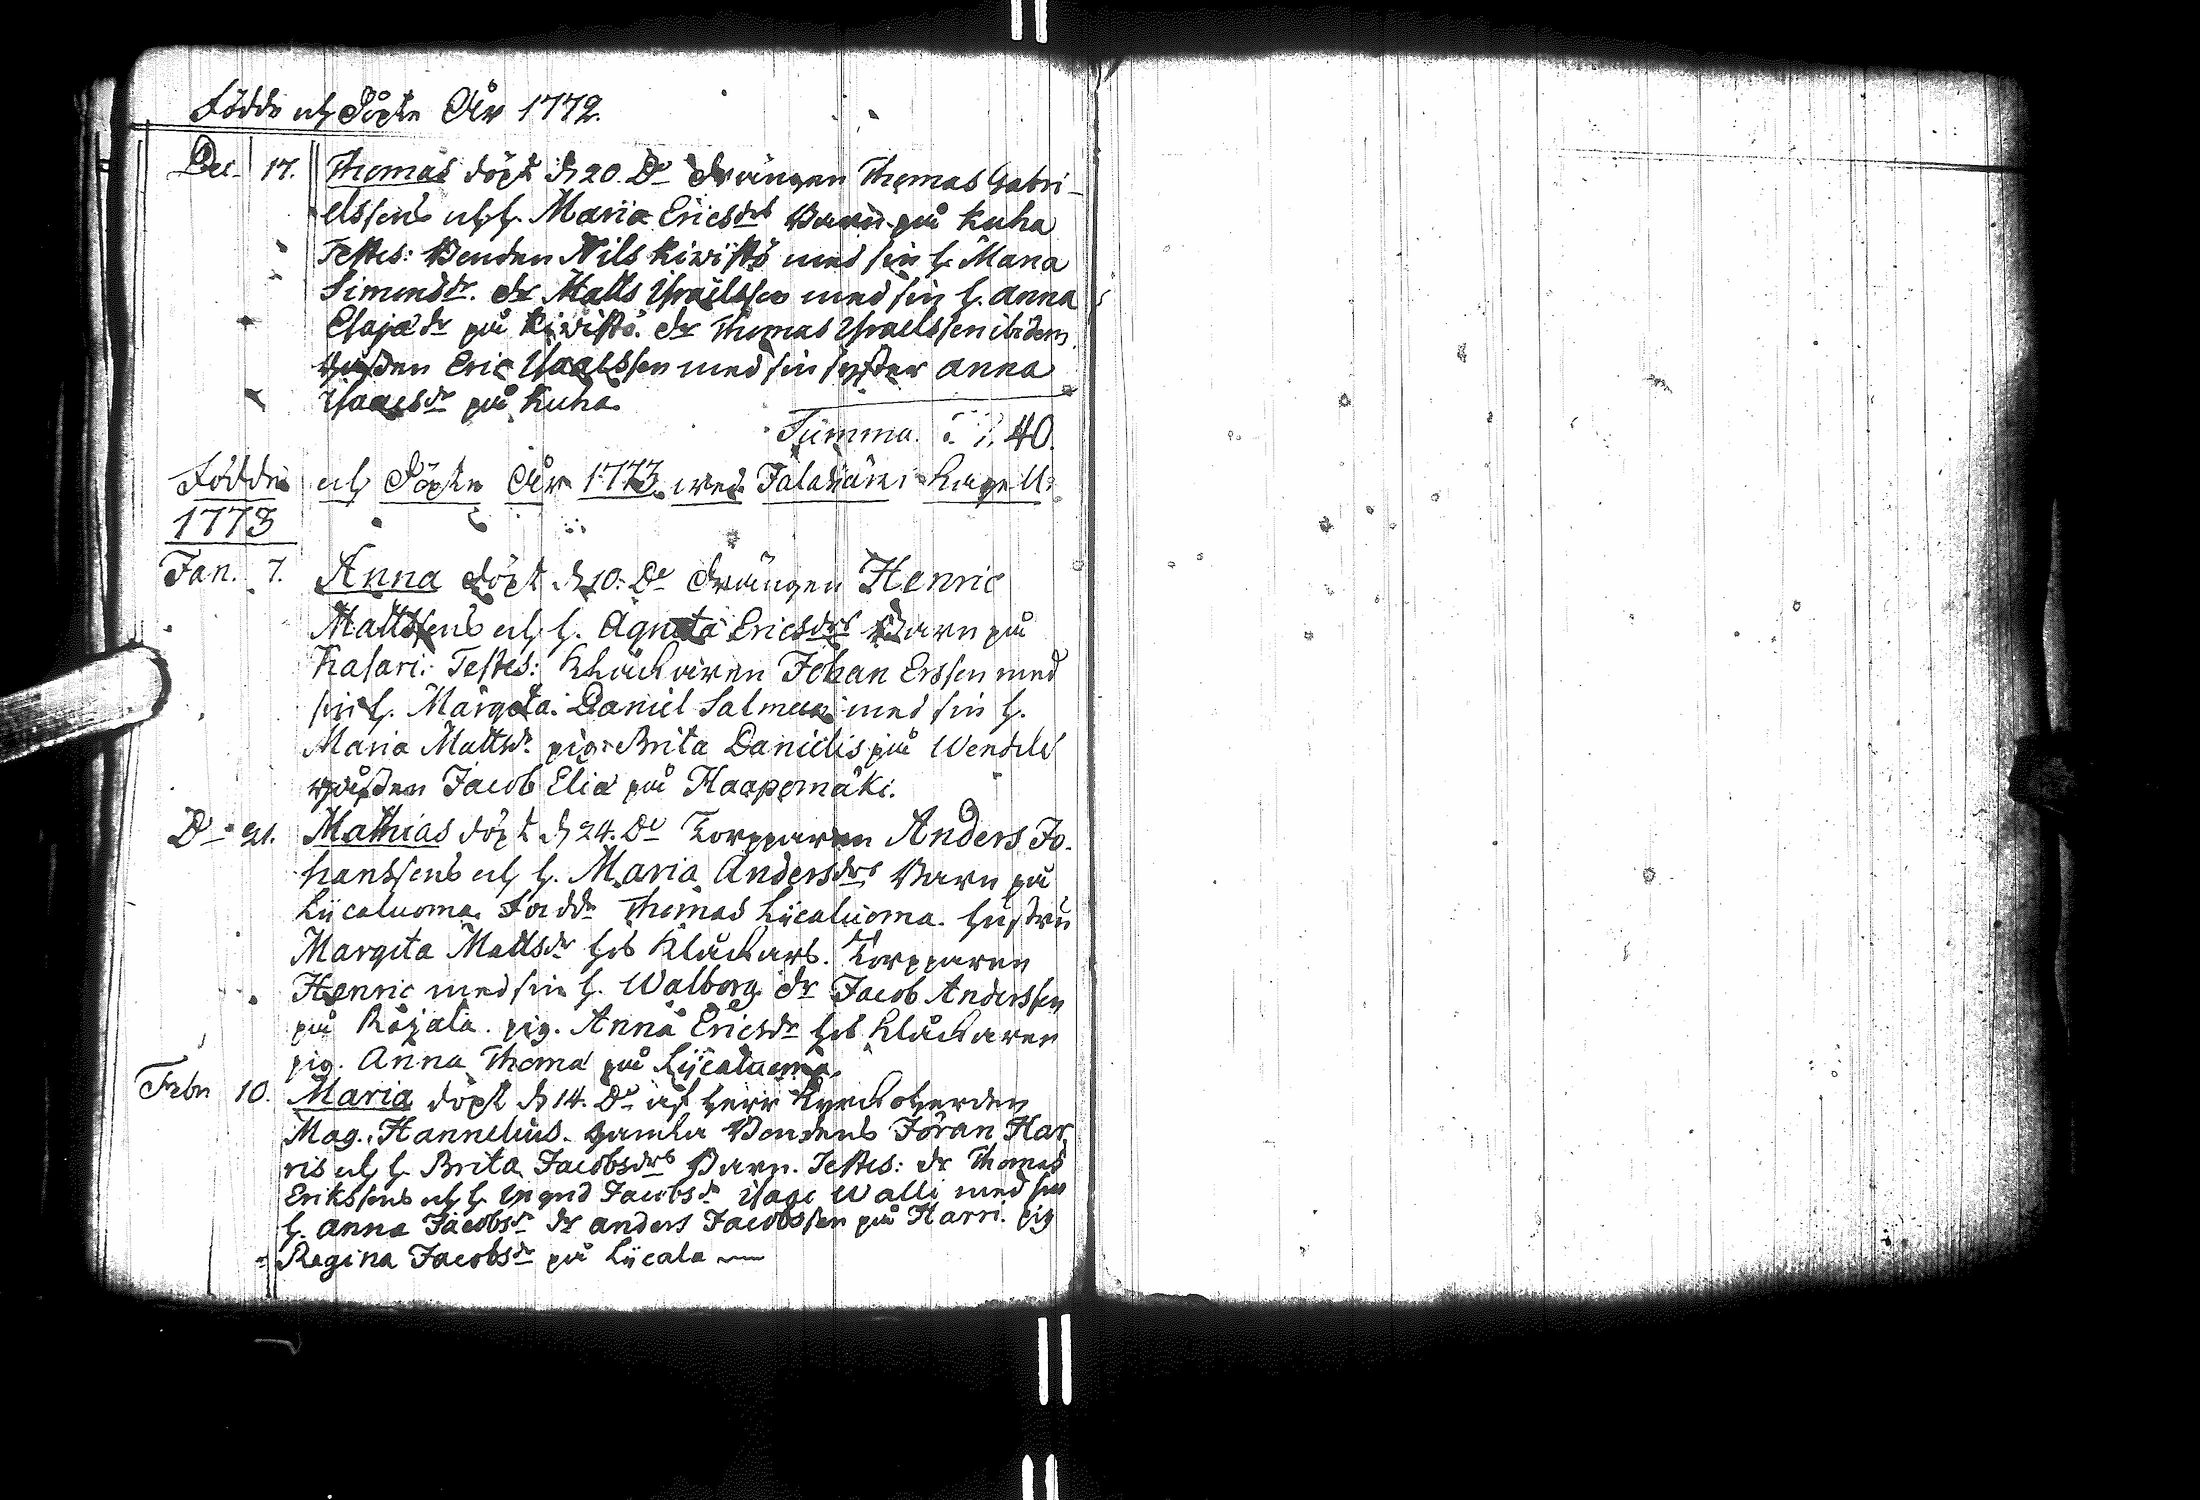 Födde och Döpte Åhr 1772.
Dec. 17. Thomas döpt d. 20. Do Drängen Thomas Gabri-
elssens och h. Maria Ericsdrs Barn på Kuha
Testes: Bonden Nils Kiwistö med sin h. Maria
Simonsdr. dr Matts Israelssen med sin h. Anna
Esajædr på Kiwistö. dr Thomas Israelssen ibidem.
Eric Isacssen med sin syster Anna
Isacsdr på Kuha.
Summa. 40.
Födde och Döpte Åhr 1773 wed Falaxärvi Capell
1773
Jan. 7. Anna döpt d. 10. Do Drängen Henric
Mattssens och h. Agneta Ericsdrs Barn på
Kasari. Testes: Klåckaren Johan Erssen med
sin h. Margeta. Daniel Salmen med sin h.
Maria Mattsdr. pig. Brita Danielis på Wendelä
Jacob Eliæ på Haapomäki.
Do 21. Mathias döpt d. 24. Do Torpparen Anders Jo-
hanssens och h. Maria Andersdrs Barn på
Lijcaluoma. Faddr Thomas Lijcaluoma. hustru
Margeta Mattsdr hos Klåckars. Torpparen
Henric med sin h. Walborg dr Jacob Anderssen
på Röjala. pig. Anna Ericsdr hos Klåckaren
pig. Anna Thomæ på Lijcaluoma.
Febr 10. Maria döpt d. 14. Do af Herr Kyrckoherden
Mag. Hannelius. gamla Bondens Jöran Har-
ris och h. Brita Jacobsdrs Barn. Testes: dr Thomas
Erikssens och h. Ingrid Jacobsdr Isac Walli med sin
h. Anna Jacobsdr dr Anders Jacobssen på Harri. pig
Regina Jacobsdr på Lijcala